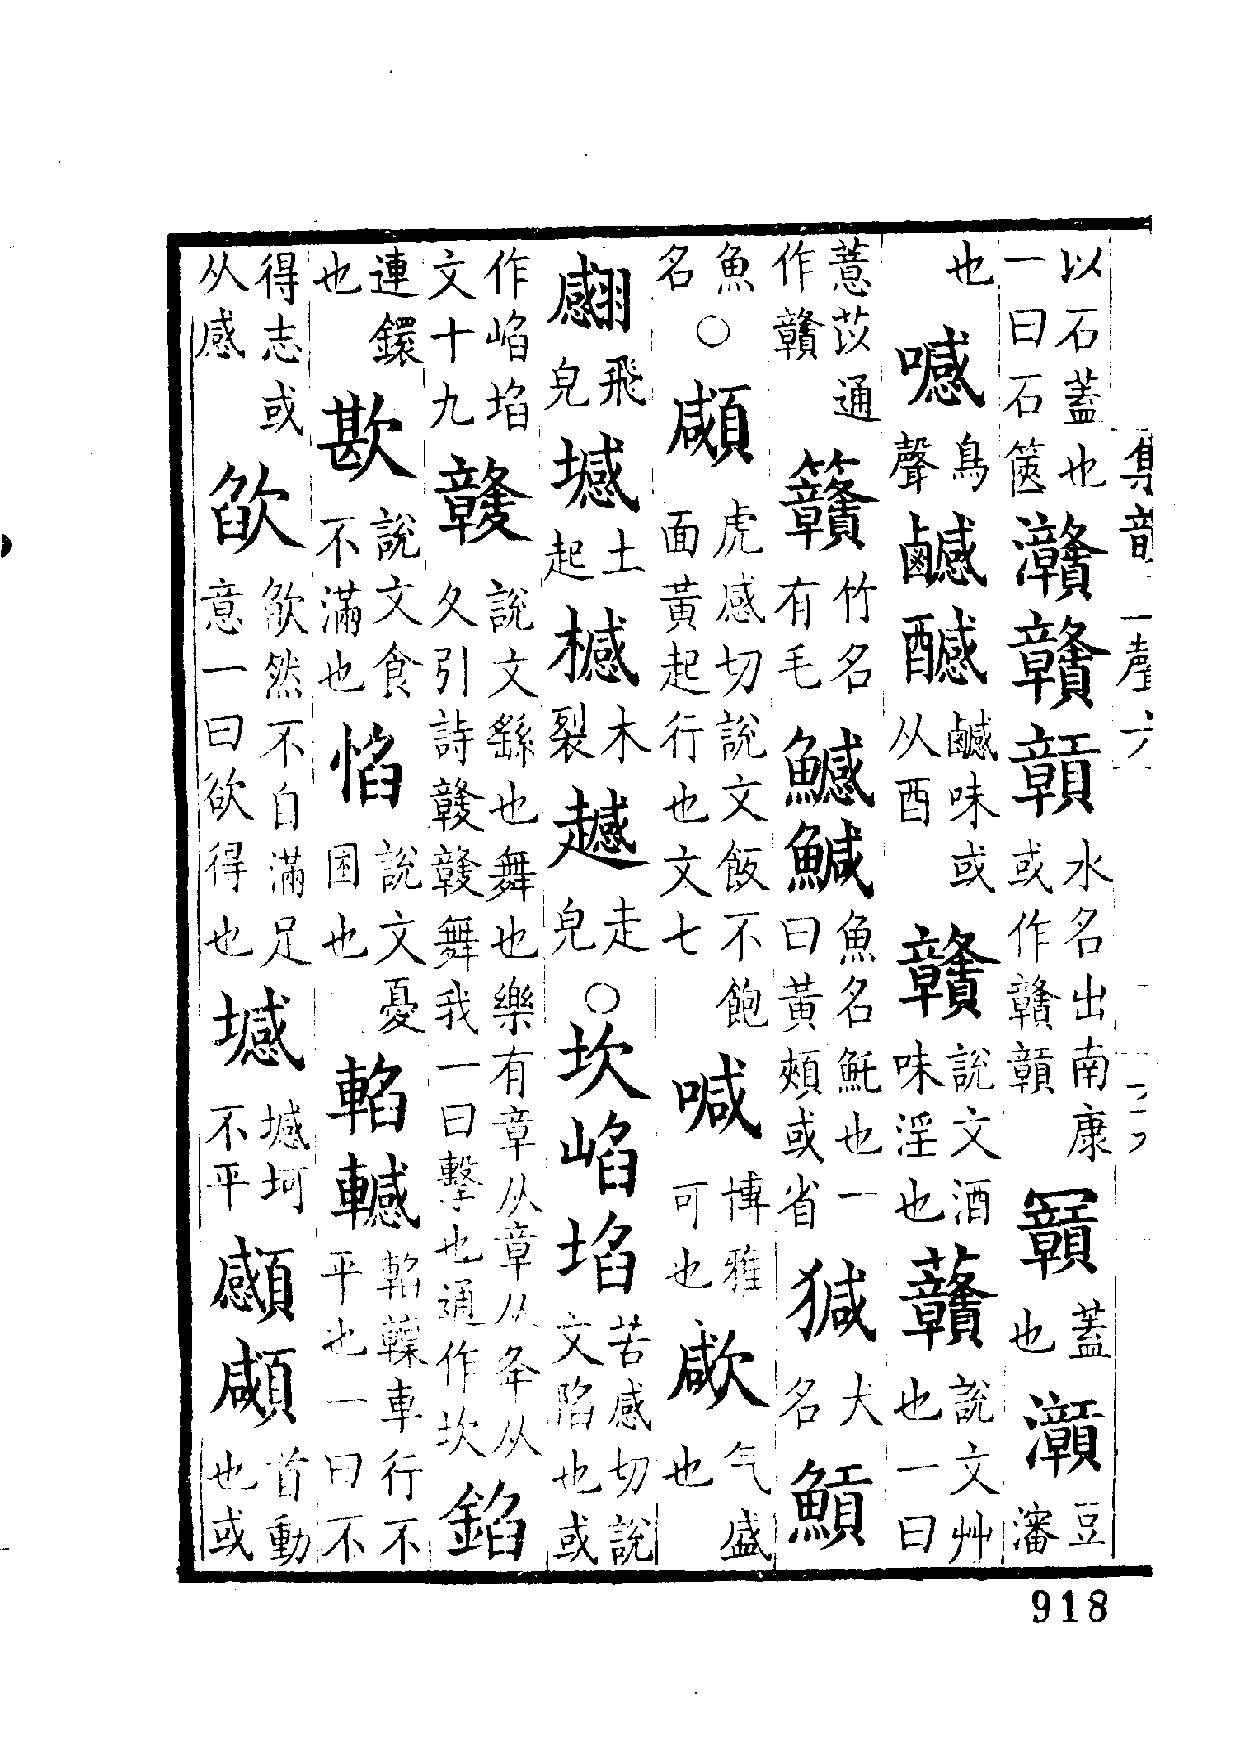 集韻
聲六
以石蓋也一曰石篋灨贛贑水名出南康或作贛贑蓋也豆瀋
也鳥聲味或从酉贛說文酒味淫也說文艸也一曰
薏苡通作贛竹名有毛鱤鰔魚名魠也一曰黃頰或省犬名
魚名○顑虎感切說文飯不飽面黃起行也文七喊博雅可也气盛也
飛皃㙳土起木裂走皃○坎埳苦感切說文陷也或
作埳文十九竷說文繇也舞也樂有章从章从夅从夂引詩竷竷舞我一曰擊也通作坎錎
連鐶也歁說文食不滿也惂說文憂困也輡轗輡車行不平也一曰不
得志或从感欿欿然不自滿足意一曰欲得也㙳㙳坷不平顑首動也或
918